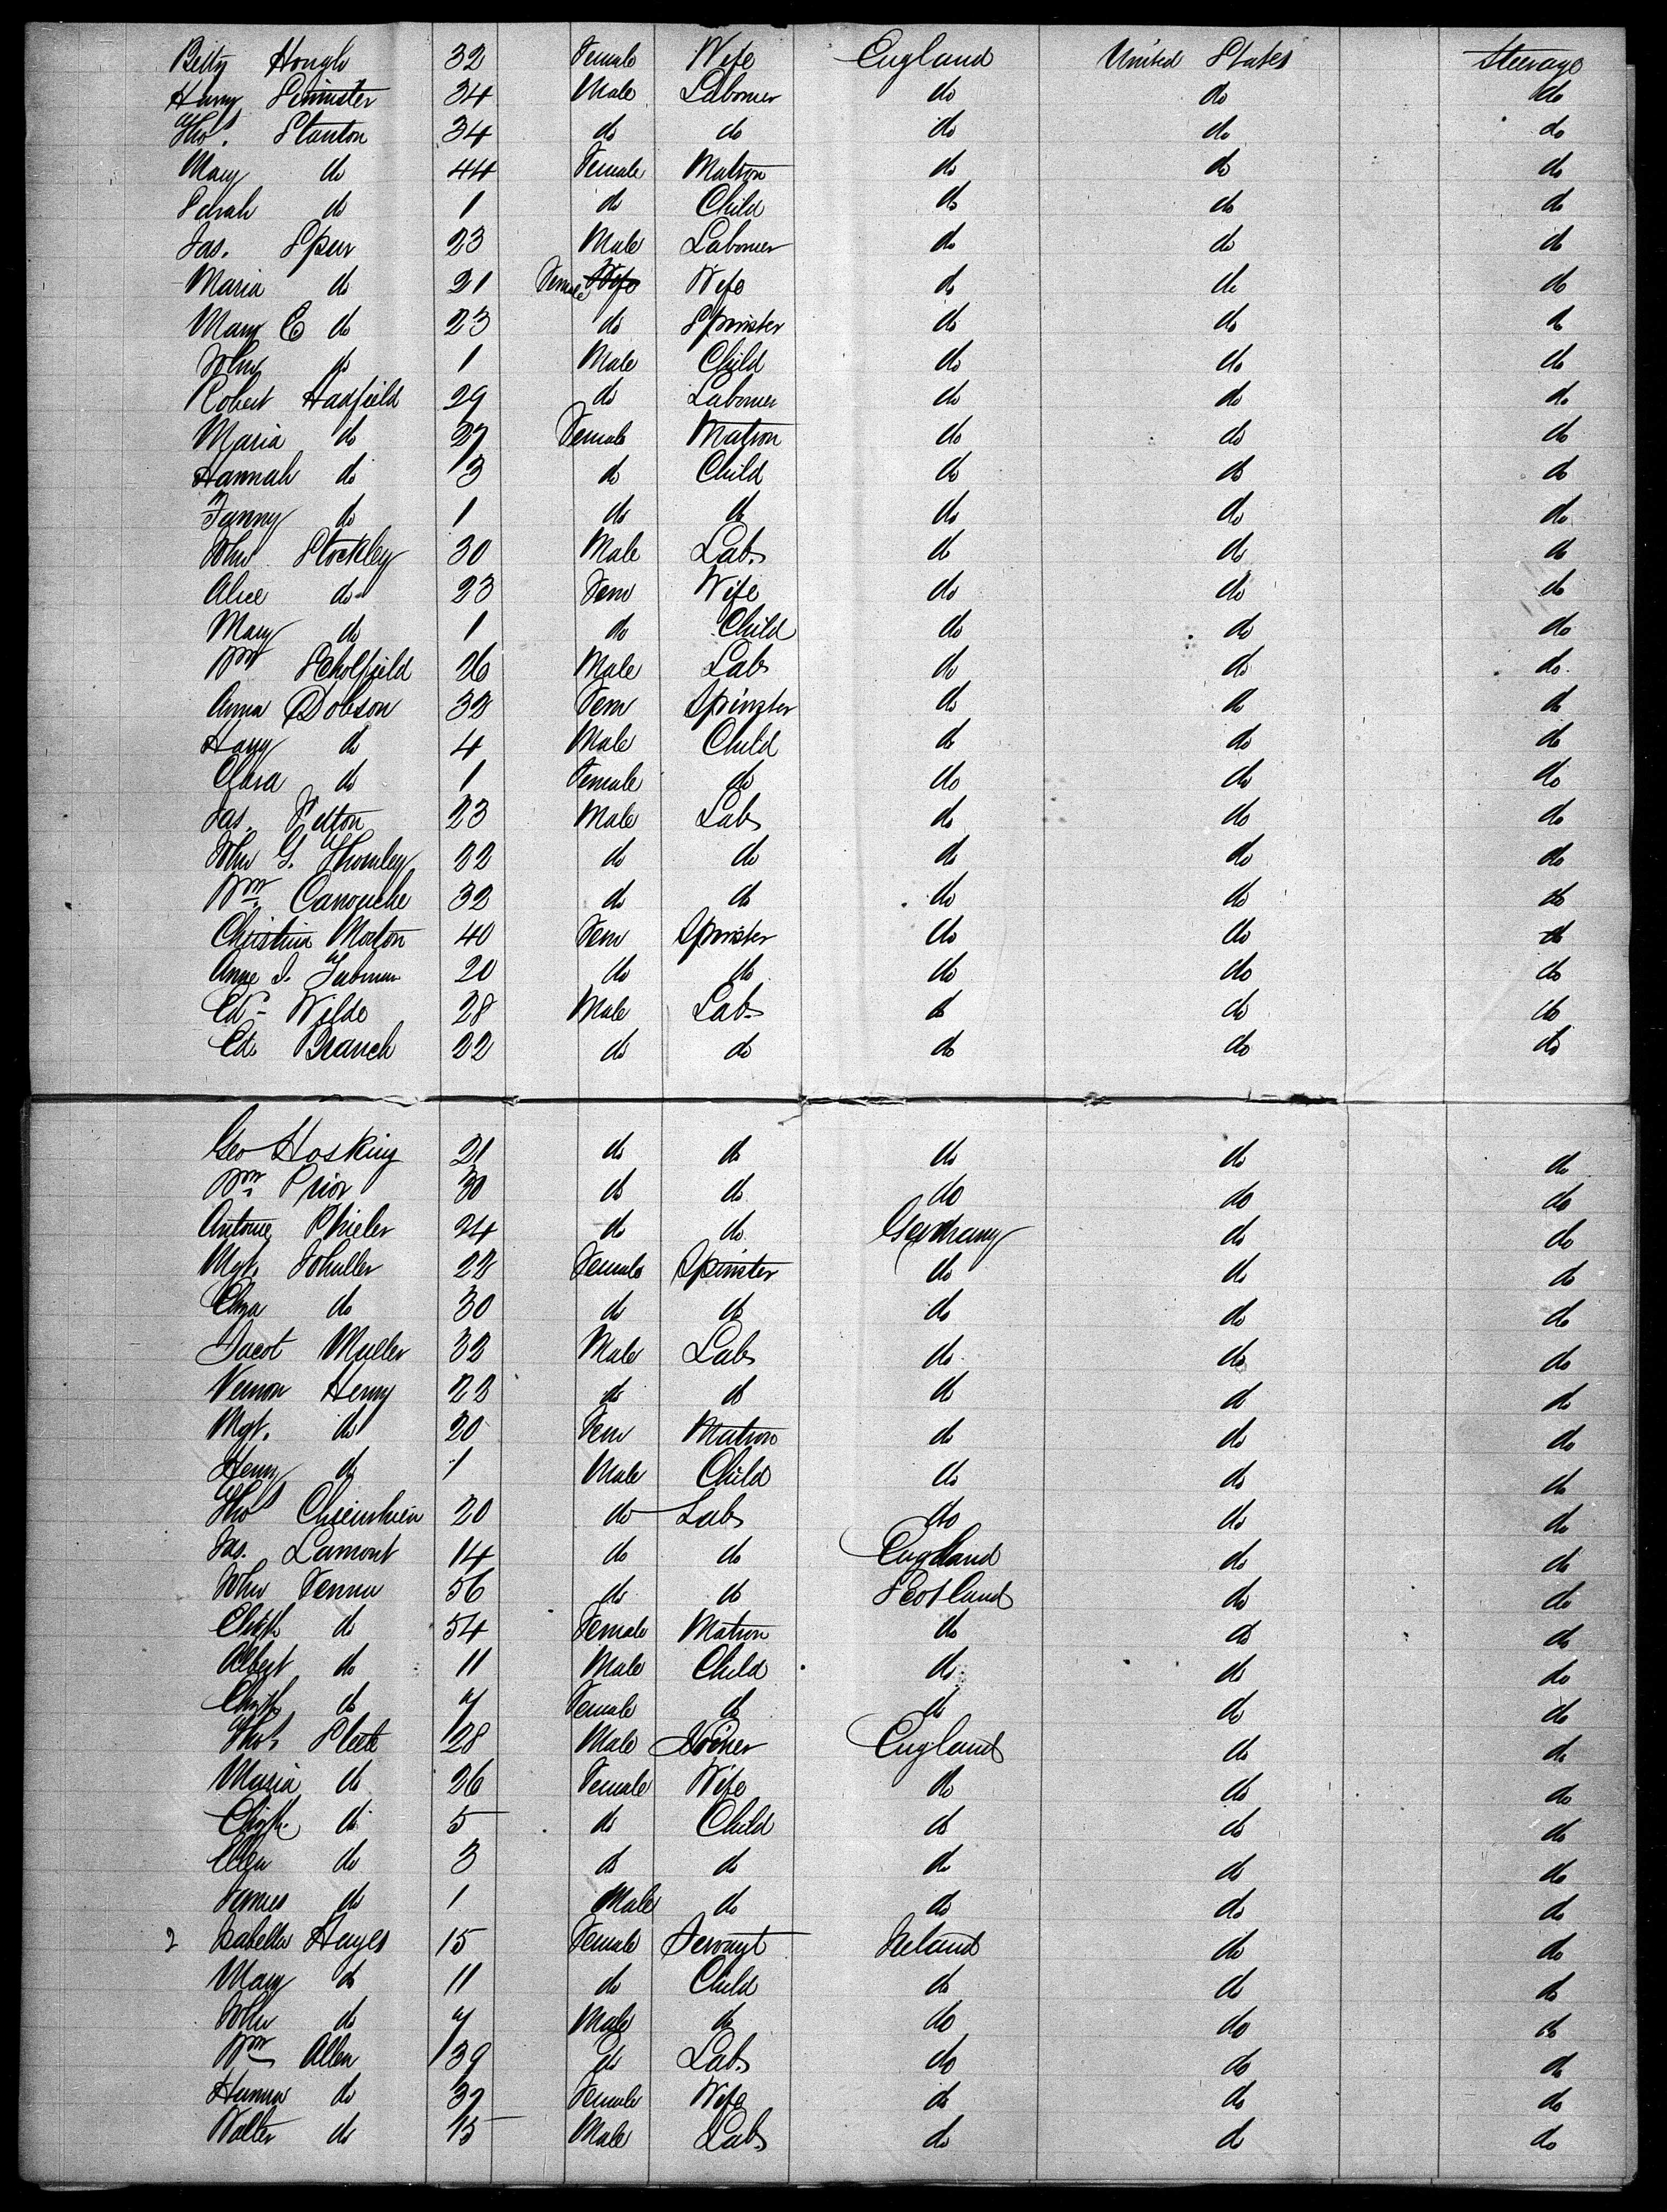 Betty Hough 32 Female Wife England United States Steerage
Henry Siminster 34 Male Labourer do do do
Thos. Stanton 34 do do do do do
Mary do 44 Female Matron do do do
Sarah do 1 do Child do do do
Jas. Spur 23 Male Labourer do do do
Maria do 21 Female Wife Wife do do do
Mary E do 23 do Spinster do do do
John do 1 Male Child do do do
Robert Hadfield 29 do Labourer do do do
Maria do 27 Female Matron do do do
Hannah do 3 do Child do do do
Fanny do 1 do do do do do
John Stockley 30 Male Lab. do do do
Alice do 23 Fem Wife do do do
Mary do 1 do Child do do do
Wm Scholfield 26 Male Lab do do do
Anna Dobson 32 Fem Spinster do do do
Harry do 4 Male Child do do do
Clara do 1 Female do do do do
Jas. Felton 23 Male Lab do do do
John G. Thornley 22 do do do do do
Wm. 32 do do do do do
Christina Morton 40 Fem Spinster do do do
Anne I. Tubman 20 do do do do do
Ed. Wilde 28 Male Lab. do do do
Ed. Branch 22 do do do do do
Geo Hosking 21 do do do do do
Wm Prior 30 do do do do do
Antoine 24 do do Germany do do
Mgt. Schuller 22 Female Spinster do do do
Eliza do 30 do do do do do
Jacob Muller 32 Male Lab do do do
Vernon Henry 22 do do do do do
Mgt. do 20 Fem Matron do do do
Henry do 1 Male Child do do do
Thos 20 do Lab do do do
Jas. Lamont 14 do do England do do
John 56 do do Scotland do do
do 54 Female Matron do do do
Albert do 11 Male Child do do do
do 7 Female do do do do
Thos. Sleete 28 Male Joiner England do do
Maria do 26 Female Wife do do do
do 5 do Child do do do
Ellen do 3 do do do do do
James do 1 Male do do do do
2 Isabella Hayes 15 Female Servant Ireland do do
Mary do 11 do Child do do do
John do 7 Male do do do do
Wm Allen 39 do Lab. do do do
Hanna do 37 Female Wife do do do
Walter do 15 Male Lab. do do do